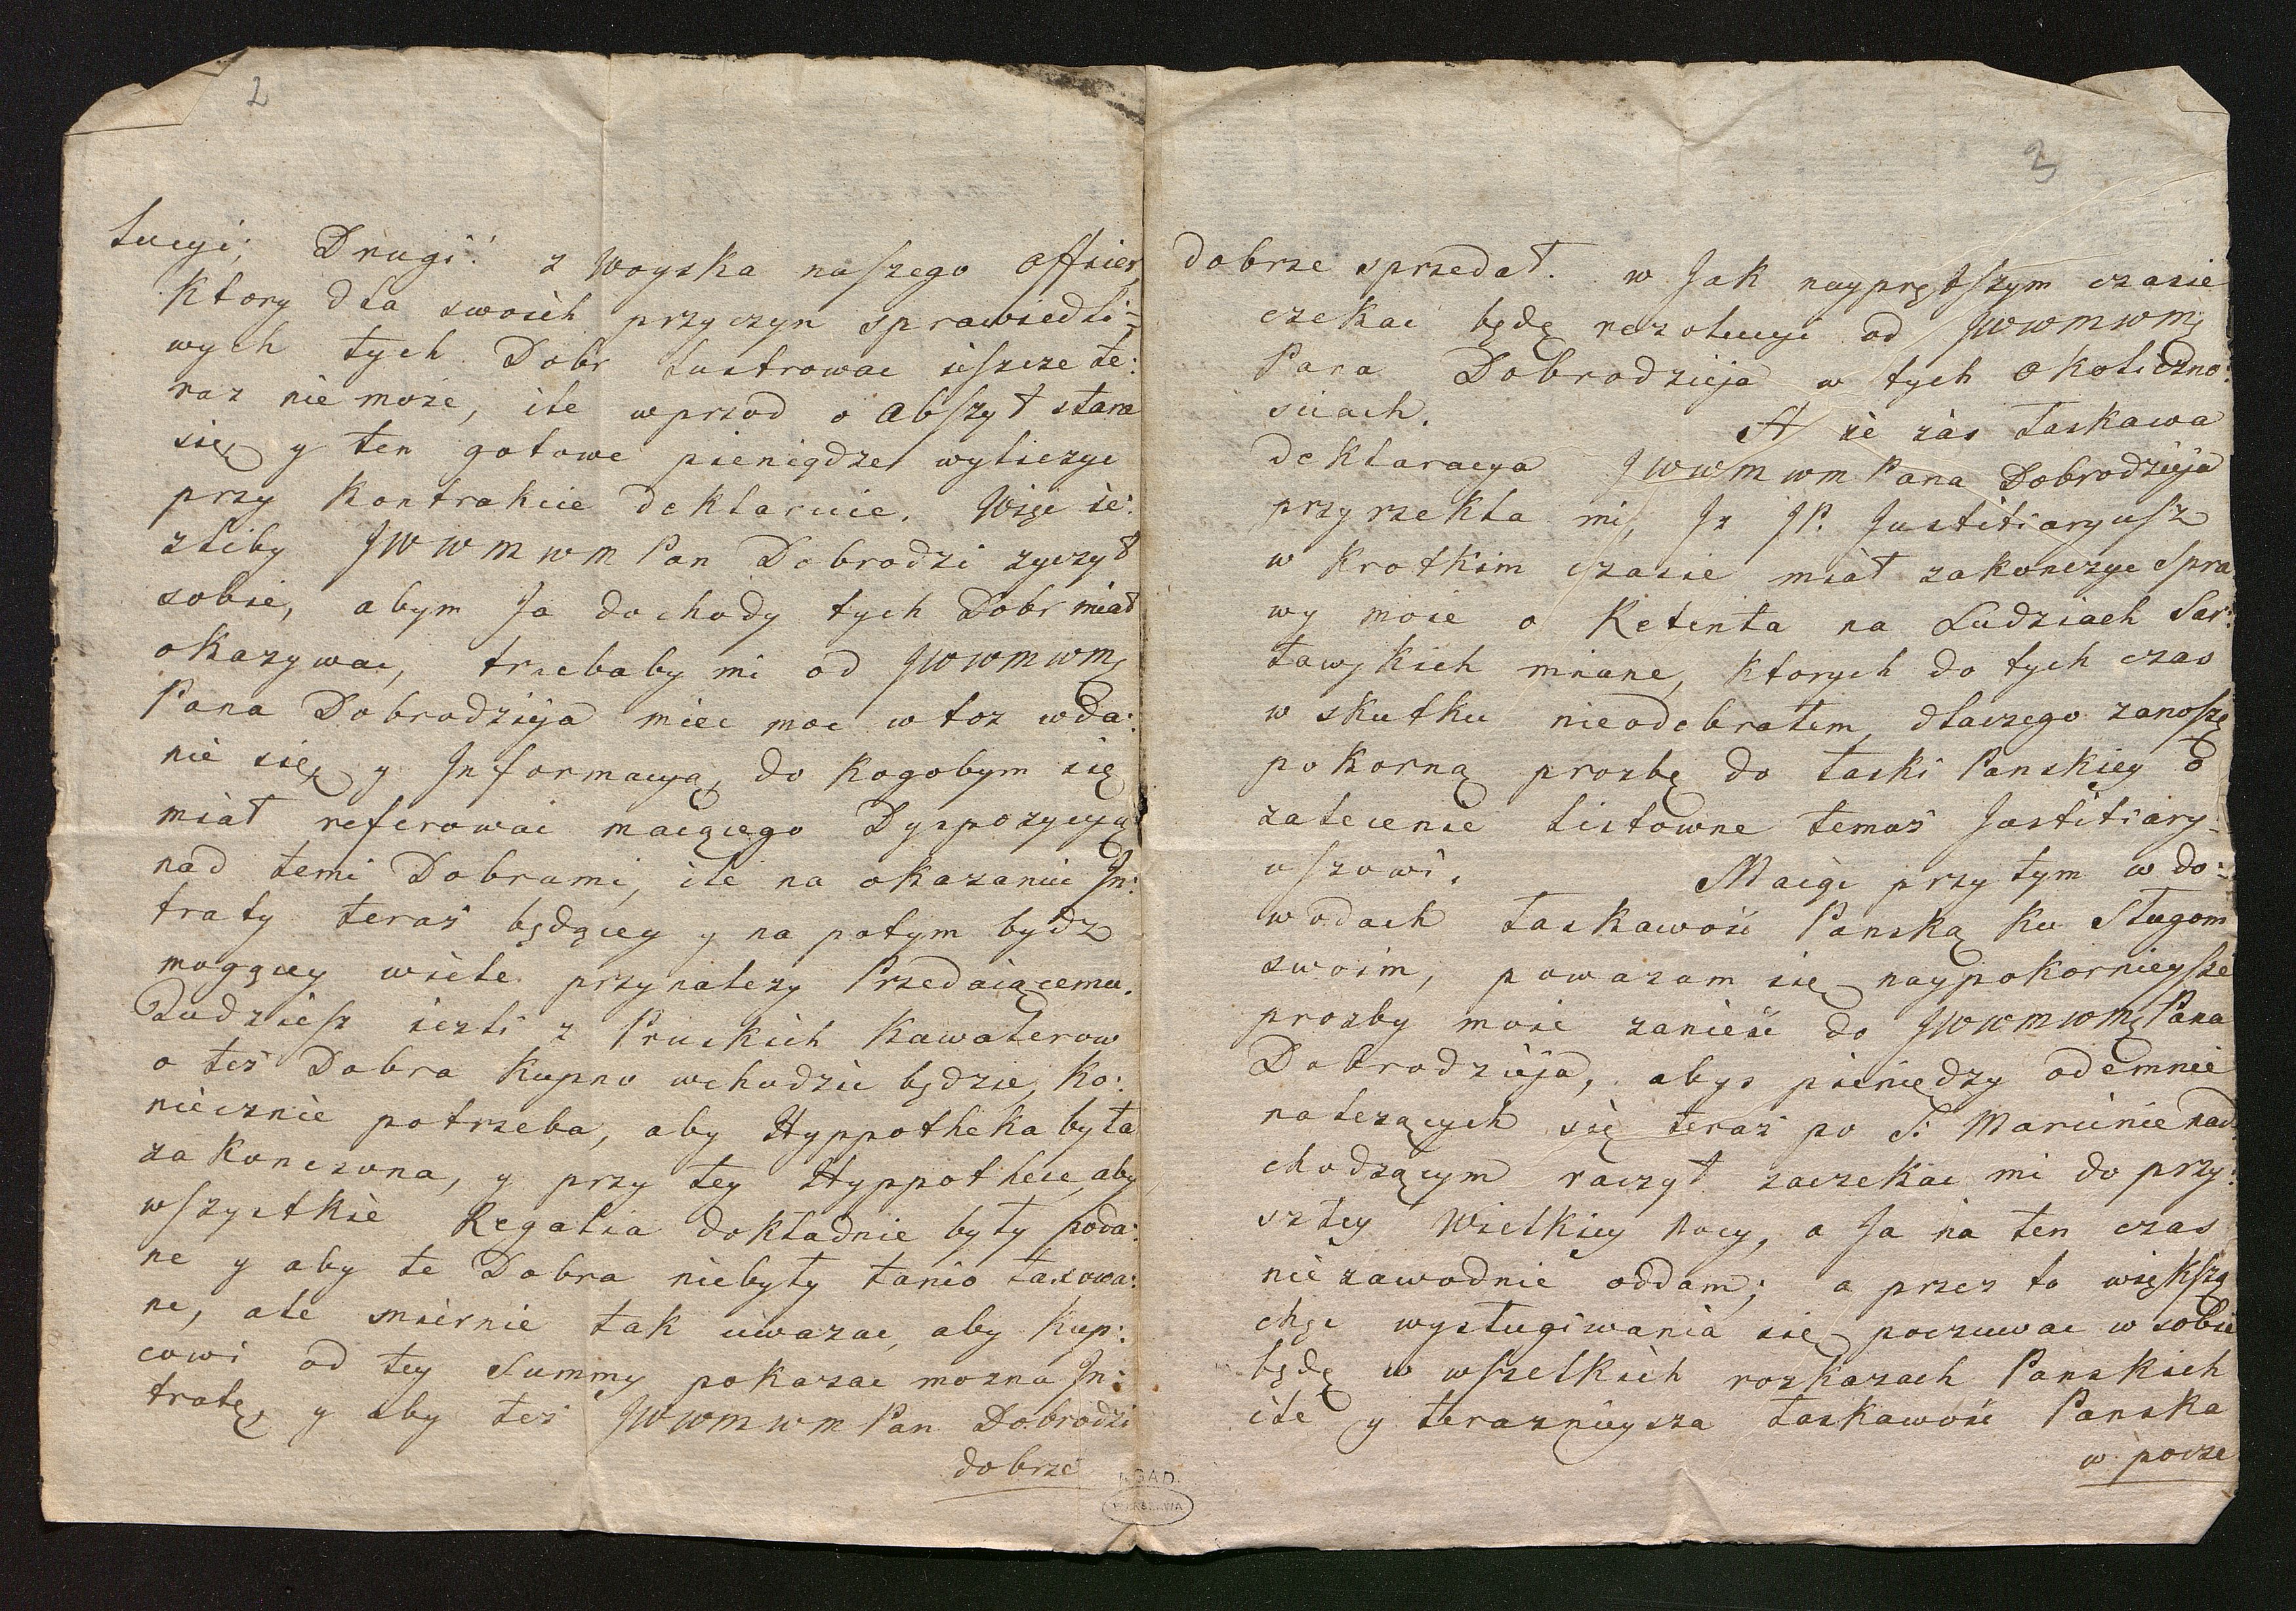 2
lucyi; Drugi: z Woyska naszego Officer,
Ktory dla swoich przyczyn sprawiedli=
wych tych Dobr lustrowac ieszcze te:
raz nie może, ile wprzod o Abszyt stara
się y ten gotowe pieniądze wyliczyc
przy Kontrakcie deklaruie. Więc ie:
zliby JWWMWM Pan Dobrodzi zyczył
sobie, abym Ja dochody tych Dobr miał
okazywac, trzebaby mi od JWWMWMę
Pana Dobrodzieja miec moc w toz wda:
nie się y Informacyą, do Kogobym się
miał referowac maiącego Dyspozycyą
nad temi Dobrami, ile na okazanie In:
traty teraz będącey y na potym bydz
mogącey wiele przynalezy Przedaiącemu.
Tudziesz iezli z Pruskich Kawalerow
o tez Dobra Kupno wchodzic będzie, Ko:
niecznie potrzeba, aby Hyppotheka była
zakonczona, y przy tey Hyppothece, aby
wszystkie Regalia dokładnie były poda:
ne y aby te Dobra niebyły tanio taxowa:
ne, ale miernie tak uwazac, aby Kup:
cowi od tey Summy pokazac mozna In:
tratę, y aby tez JWWMWM Pan Dobrodzi
dobrze
3
dobrze sprzedał. w Jak nayprętszym czasie
czekac będę rezolucyi od JWWMWMę
Pana Dobrodzieja w tych okoliczno:
sciach. A że zás łaskawa
deklaracya JWWMWM Pana Dobrodzieja
przyrzekła mi, Iz JP. Justitiaryusz
w Krotkim czasie miał zakonczyc Spra
wy moie o Retenta na Ludziach Sar:
ławskich miane, ktorych do tych czas
w skutku nieodebrałem, dlaczego zanoszę
pokorną prozbę do łaski Panskiey o
zalecenie listowne temuż Justitiary:
uszowi. Maiąc przy tym w do:
wodach łaskawość Panską ku Sługom
swoim, powazam się naypokornieysze
prozby moie zanieść do JWWMWMę Pana
Dobrodzieja, abys pieniędzy odemnie
nalezących się teraz po S: Marcinie nad:
chodzącym raczył zaczekac mi do przy:
szłey Wielkiey Nocy, a Ja na ten czas
niezawodnie oddam; a przez to większą
chęc wysługiwania się poczuwac w sobie
będę w wszelkich rozkazach Panskich
ile y teraznieysza łaskawość Panska
w pocze
AGAD
WARSZAWA